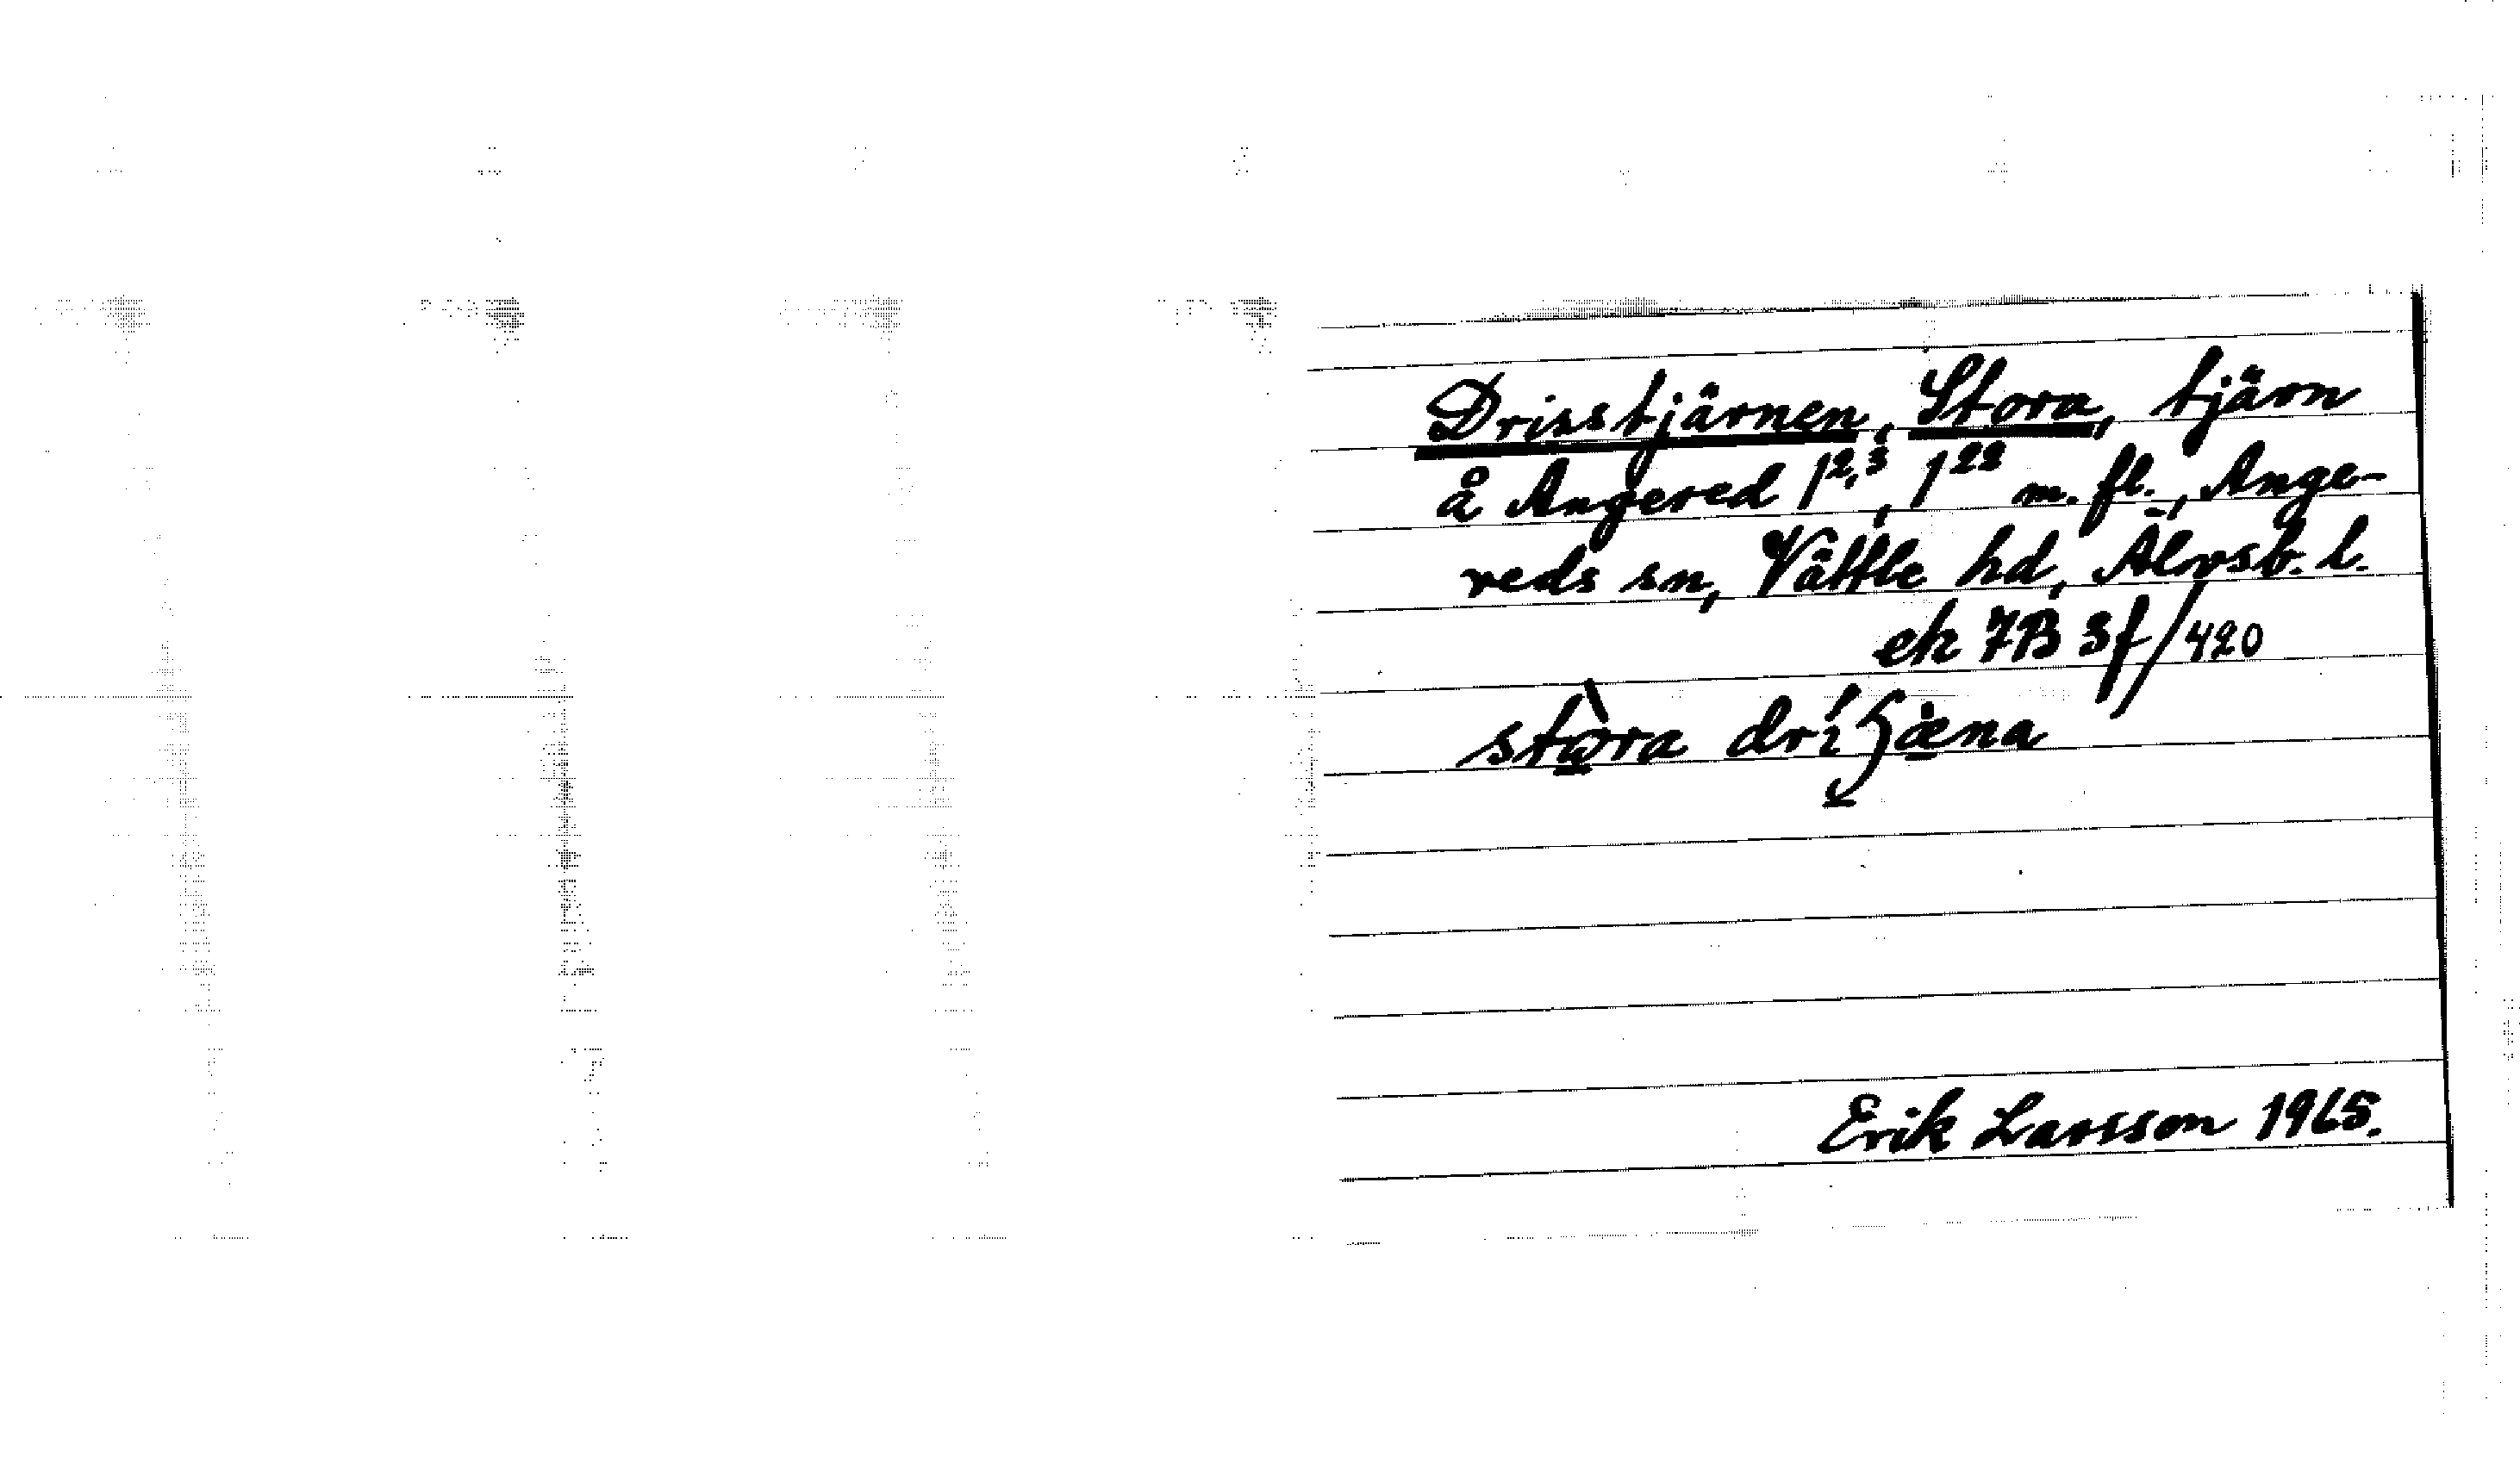 Drisstjärnen, Stora, tjärn
å Angered 1²,³, 1²² m. fl., Ange-
reds sn, Vättle hd, Älvsb. l.
ek 7B 3f/420
stora
Erik Larsson 1965.